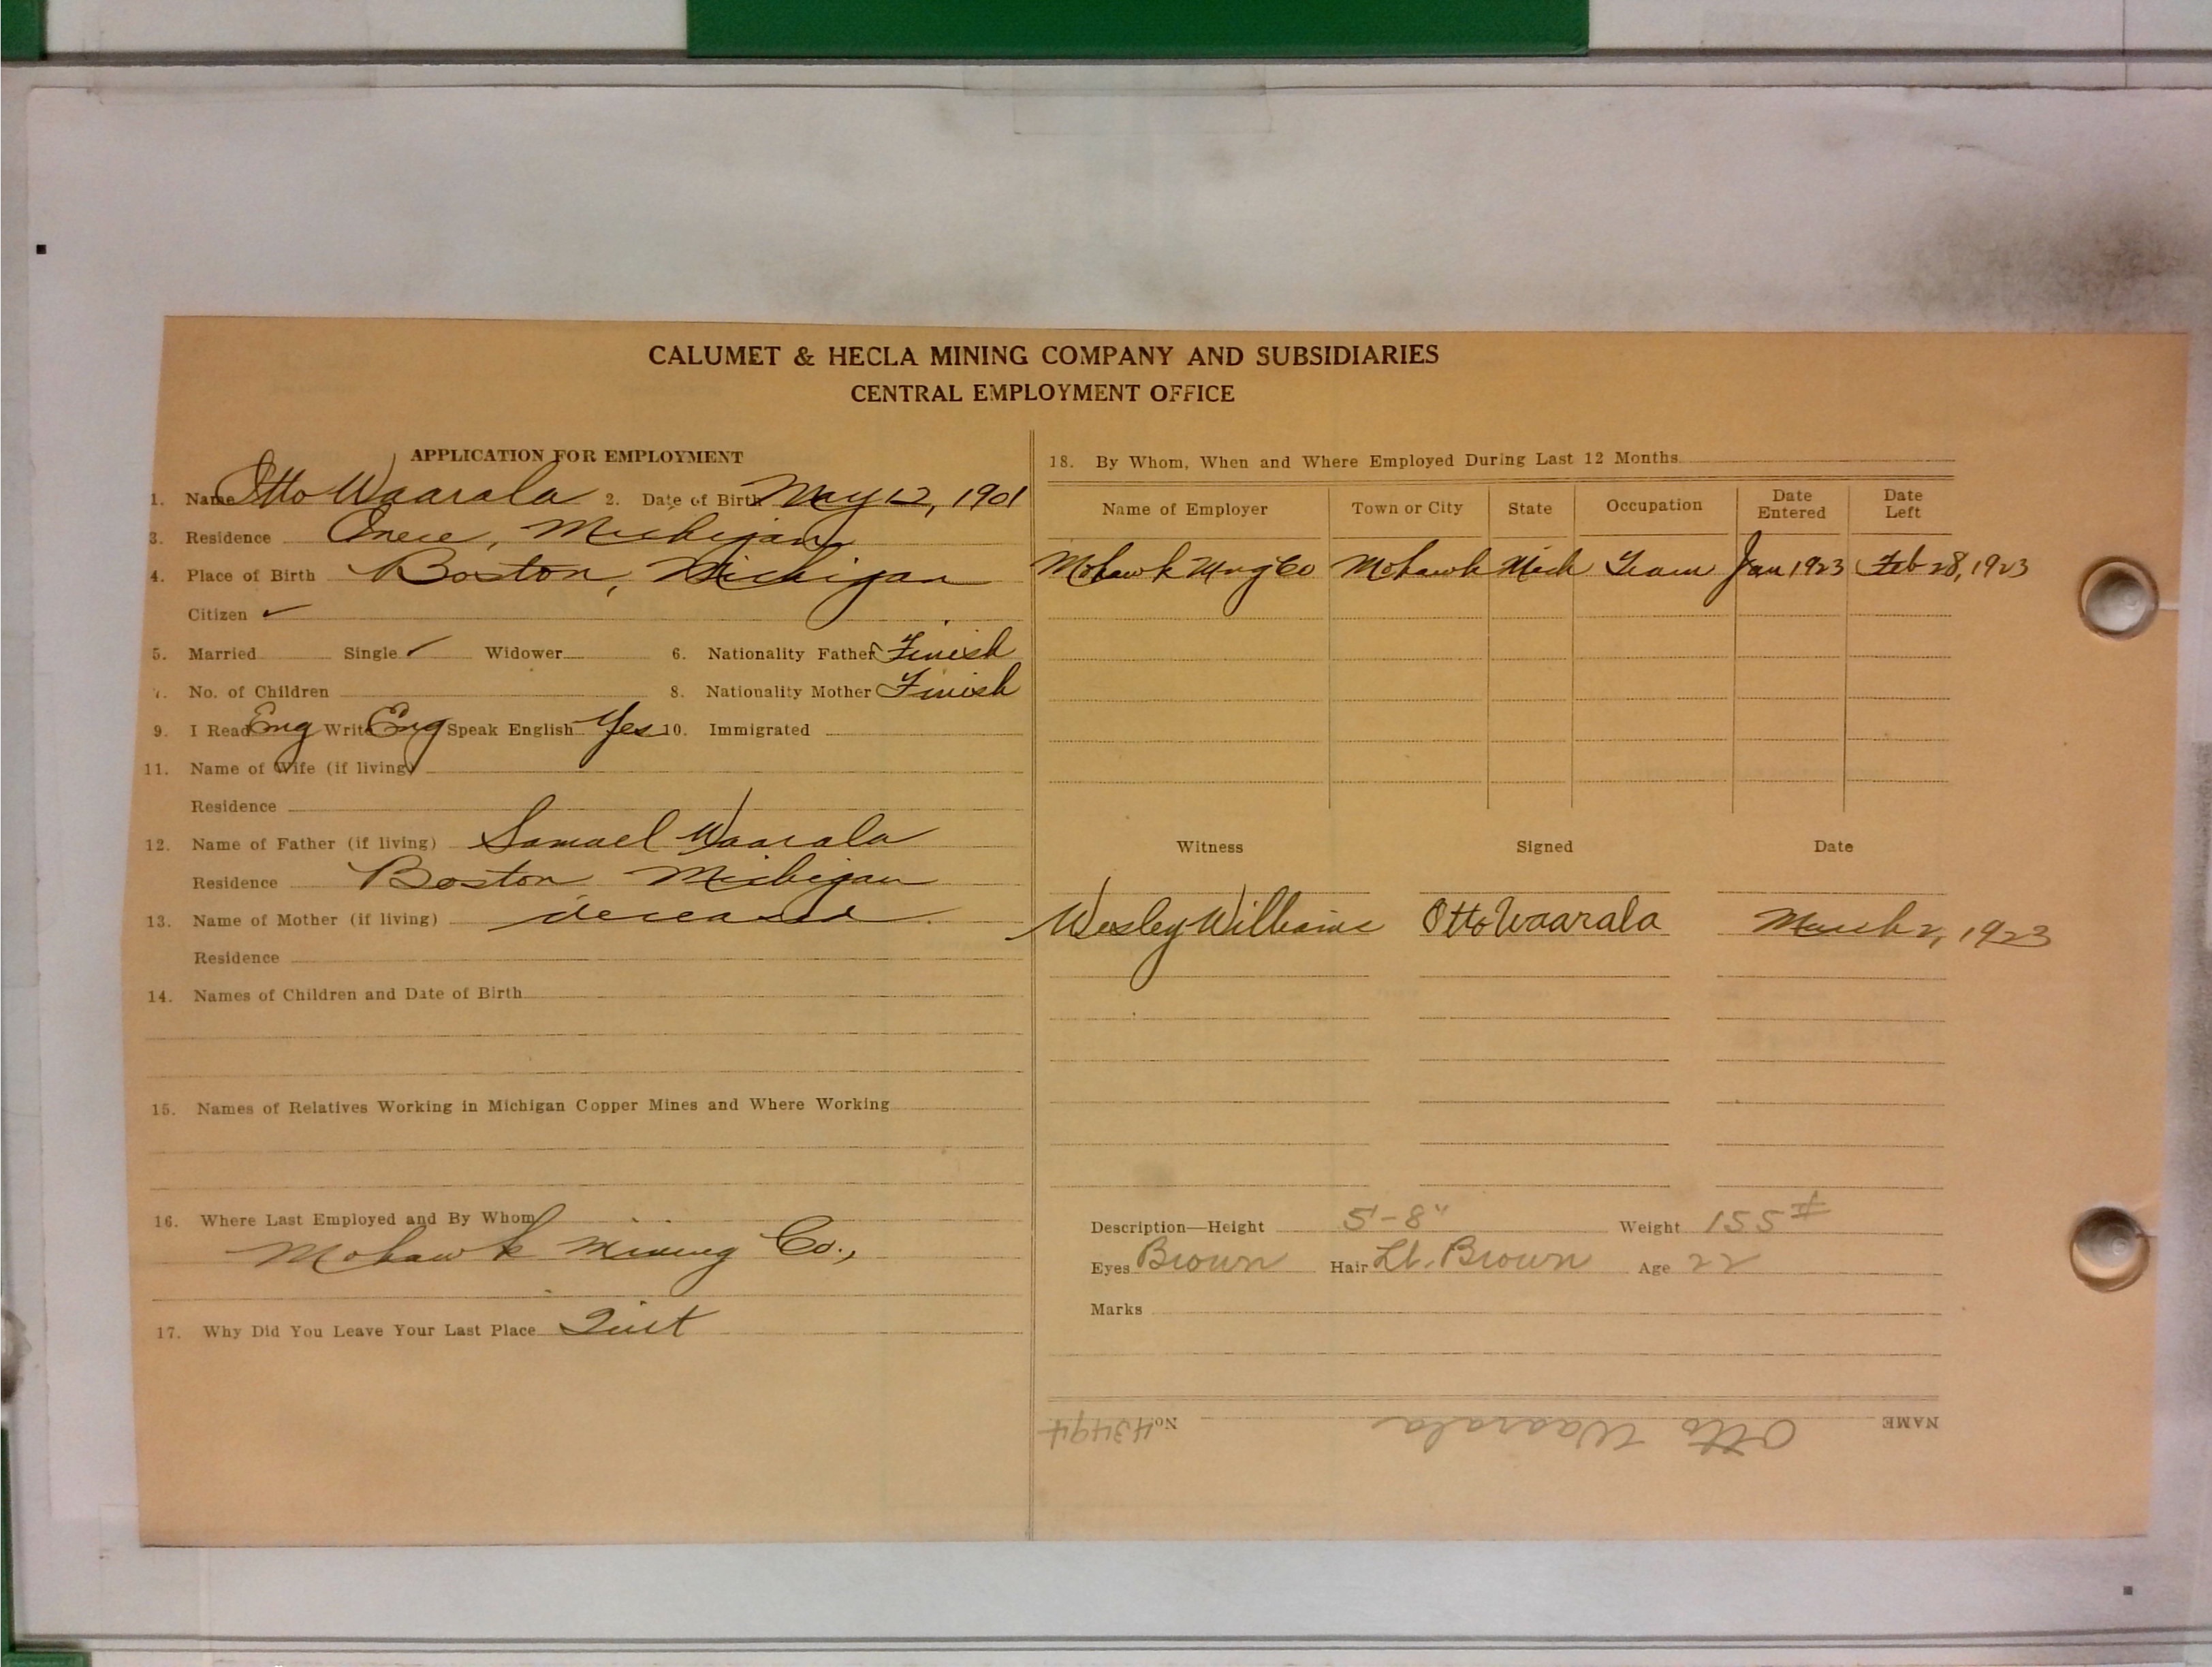 CALUMET & HECLA MINING COMPANY AND SUBSIDIARIES
CENTRAL EMPLOYMENT OFFICE
APPLICATION FOR EMPLOYMENT
1. Name Otto Waarala 2. Date of Birth May 12, 1901
3. Residence Michigan
4. Place of Birth Boston, Michigan
Citizen ✓
5. Married Single ✓ Widower 6. Nationality Father Finish
7. No. of Children 8. Nationality Mother Finish
9. I Read Eng Write Eng Speak English Yes 10. Immigrated
11. Name of Wife (if living)
Residence
12. Name of Father (if living) Samuel Waarala
Residence Boston Michigan
13. Name of Mother (if living) deceased
Residence
14. Names of Children and Date of Birth
15. Names of Relatives Working in Michigan Copper Mines and Where Working
16. Where Last Employed and By Whom
Mohawk Mining Co.,
17. Why Did You Leave Your Last Place Quit
18. By Whom, When and Where Employed During Last 12 Months
Name of Employer Town or City State Occupation Date Entered Date Left
Mohawk Mng Co Mohawk Mich Tram Jan 1923 Feb 28, 1923
Witness Signed Date
Wesley Williams Otto Waarala March 2, 1923
Description—Height 5'-8" Weight 155#
Eyes Brown Hair Lt. Brown Age 22
Marks
NAME Otto Waarala No. 43494